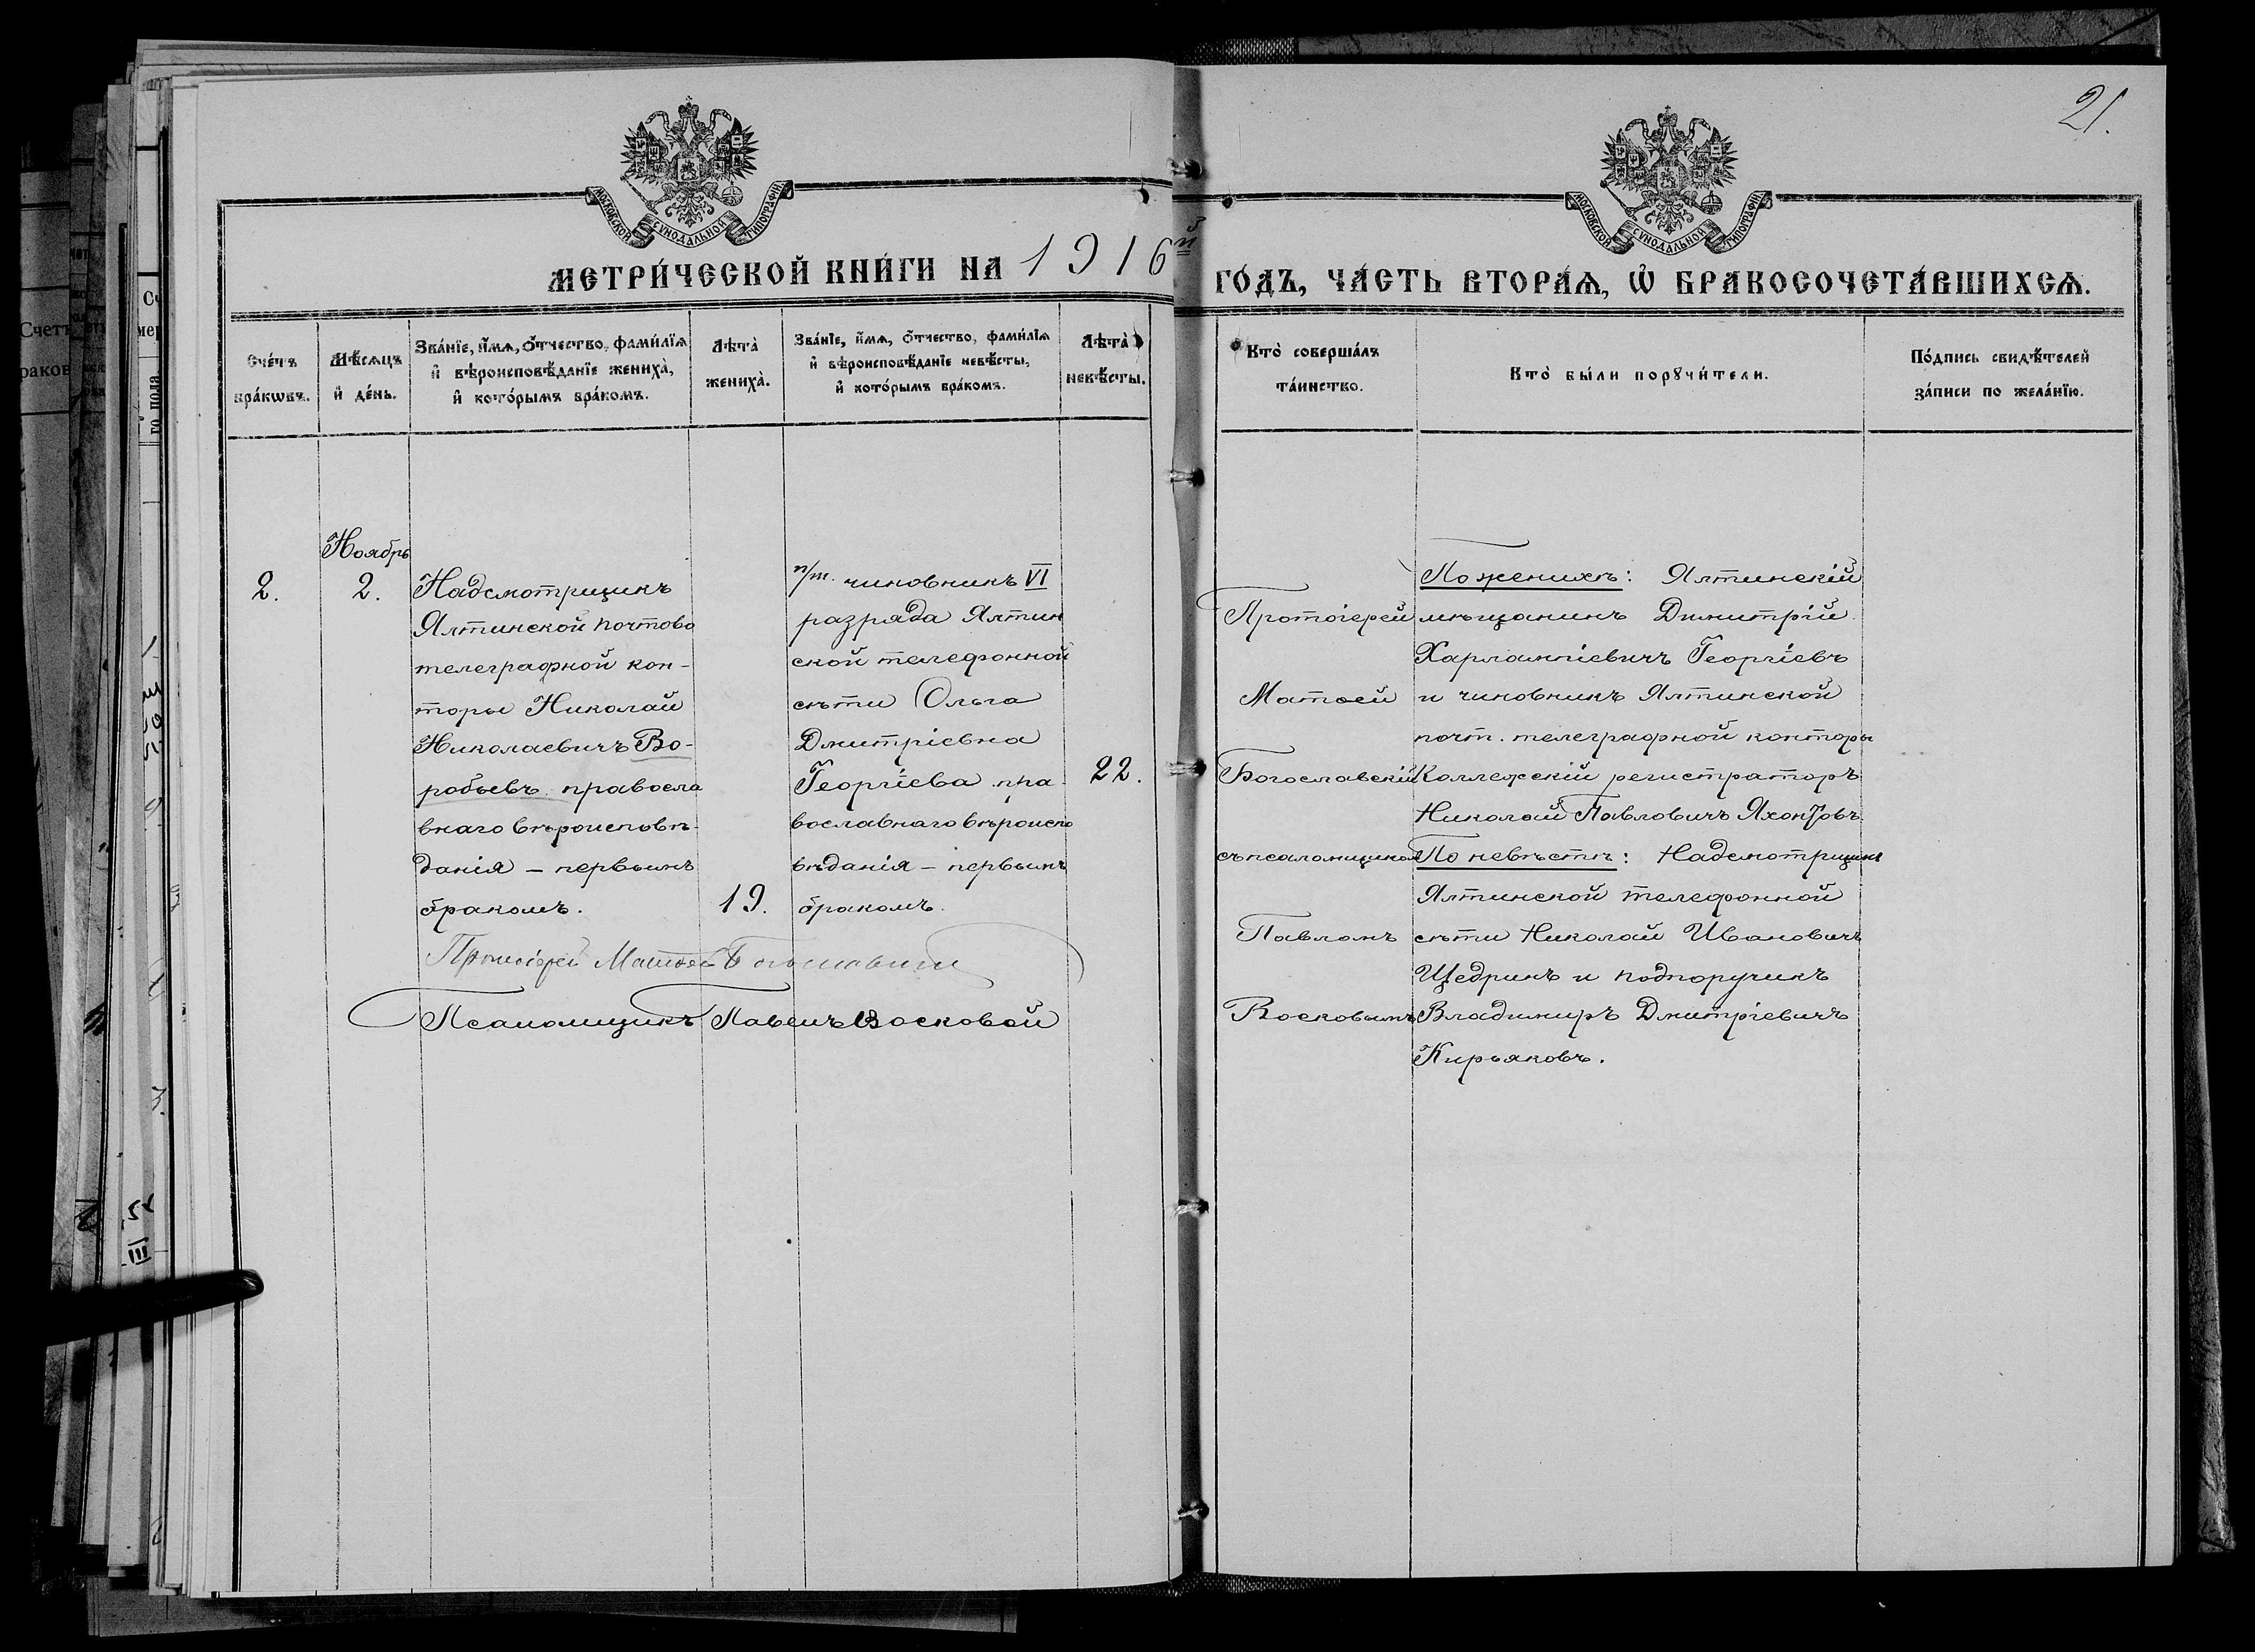 21.
МОСКОВСКОЙ СѴНОДАЛЬНОЙ ТИПОГРАФІИ
МОСКОВСКОЙ СѴНОДАЛЬНОЙ ТИПОГРАФІИ
МЕТРИ́ЧЕСКОЙ КНИ́ГИ НА 1916й ГО́ДЪ, ЧА́СТЬ ВТОРА́Ѧ, Ѡ҆ БРАКОСОЧЕТА́ВШИХСѦ.
Сче́тъ
бра́кѡвъ.
Мѣ́сѧцъ
и҆ де́нь.
Зва́нїе, и҆́мѧ, о҆́тчество, фами́лїѧ
и҆ вѣроисповѣ́данїе жениха̀,
и҆ кото́рымъ бра́комъ.
Лѣта̀
жениха̀.
Зва́нїе, и҆́мѧ, о҆́тчество, фами́лїѧ
и҆ вѣроисповѣ́данїе невѣ́сты,
и҆ кото́рымъ бра́комъ.
Лѣта̀
невѣ́сты.
Кто̀ соверша́лъ
та́инство.
Кто̀ бы́ли порꙋчи́тели.
По́дпись свидѣ́телей
за́писи по жела́нїю.
2.
Ноябрь
2.
Надсмотрщикъ
Ялтинской почтово
телеграфной кон-
торы Николай
Николаевичъ Во-
робьевъ правосла
внаго вѣроисповѣ-
данія – первымъ
бракомъ.
19.
п/т. чиновникъ VI
разряда Ялтин
ской телефонной
сѣти Ольга
Дмитріевна
Георгіева пра-
вославнаго вѣроиспо
вѣданія – первымъ
бракомъ.
22.
Протоіерей Матѳей Богославскій
Псаломщикъ Павелъ Восковой
Протоіерей
Матѳей
Богославскій
съ псаломщикомъ
Павломъ
Восковымъ
По женихѣ: Ялтинскій
мѣщанинъ Димитрій
Харлампіевичъ Георгіевъ
и чиновникъ Ялтинской
почт. телеграфной конторы
Коллежскій регистраторъ
Николай Павловичъ Яхонтовъ
По невѣстѣ: Надсмотрщикъ
Ялтинской телефонной
сѣти Николай Ивановичъ
Щедринъ и подпоручикъ
Владимиръ Дмитріевичъ
Кирьяковъ.